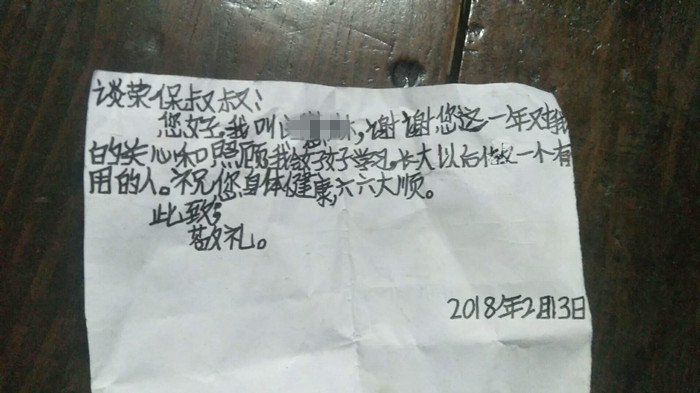 谈荣保叔叔:
您好.我叫,谢谢您这一年对我
的关心和照顾我会好好学习.长大以后做一个有
用的人。祝您身体健康,六六大顺。
此致;
敬礼。
2018年2月13日